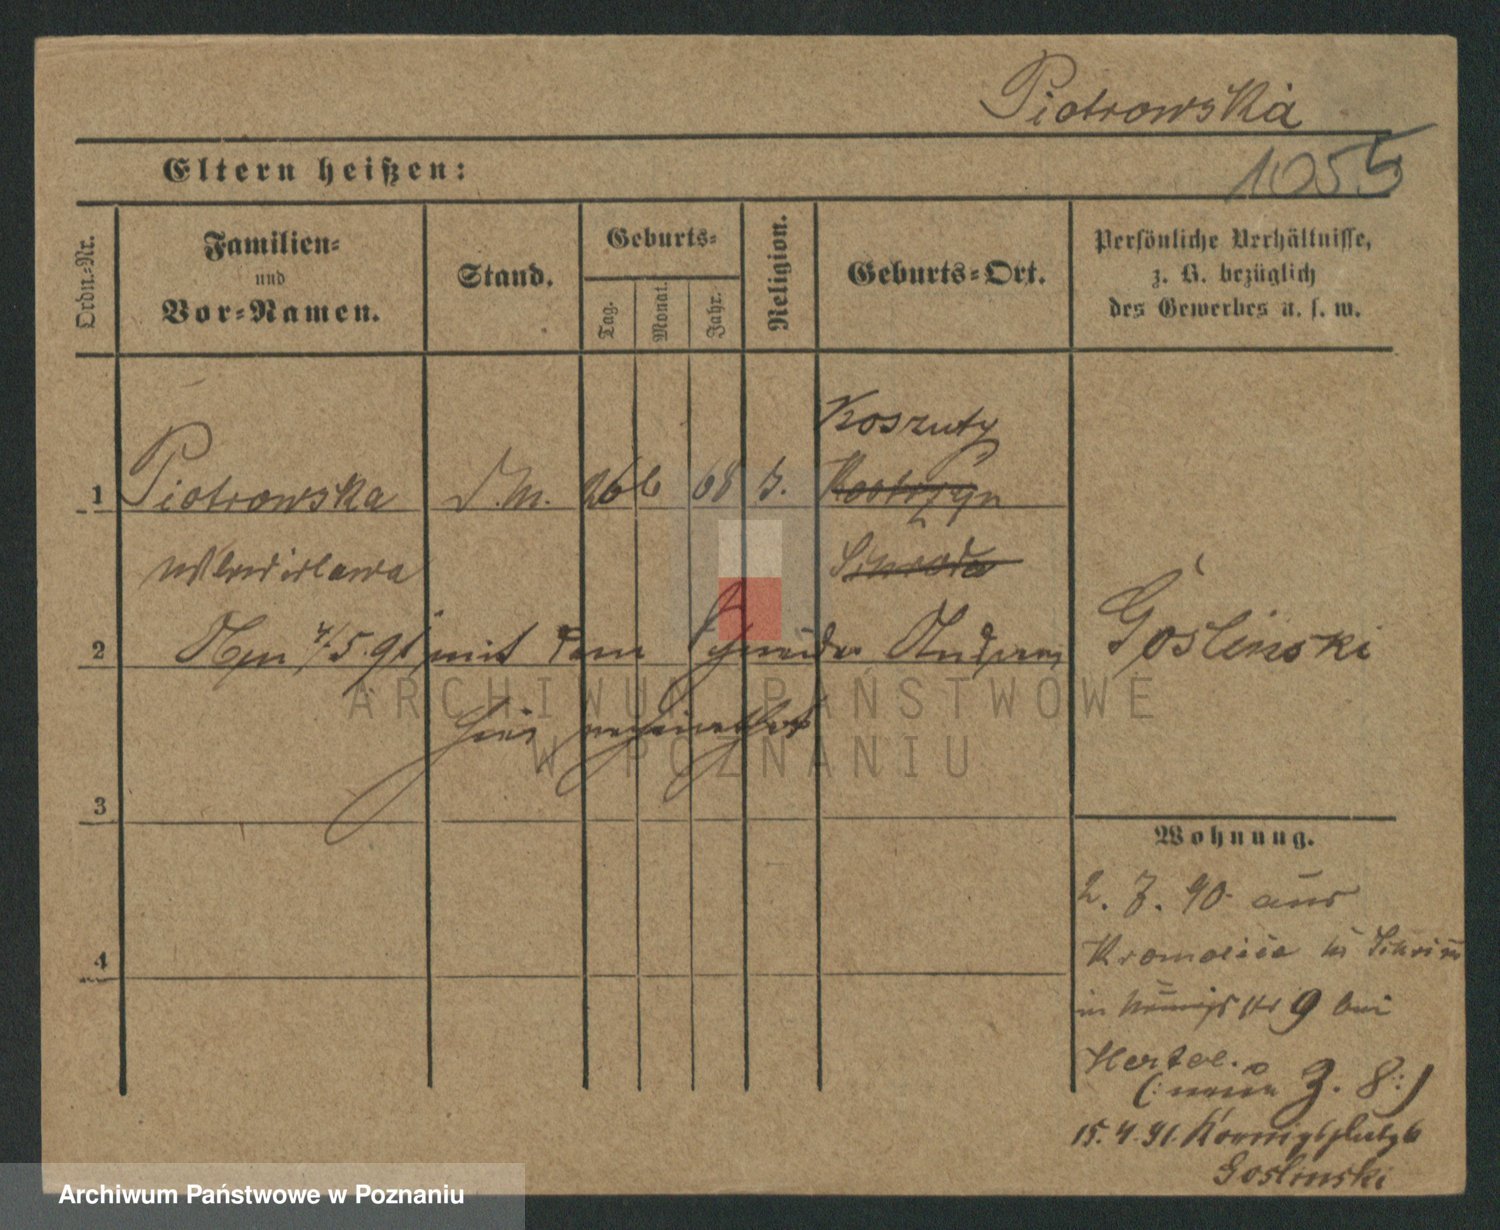 Piotrowska
1055
Eltern heißen:
Ordn.-Nr.
Familien-
und
Vor-Namen.
Stand.
Geburts-
Tag.
Monat.
Jahr.
Religion.
Geburts-Ort.
Persönliche Verhältnisse,
z. B. bezüglich
des Gewerbes u. s. w.
Koszuty
1 Piotrowska D.M. 26 6 68 k. Kostrzyn
Schroda
Wladislawa
2 Am 4/5.91 mit dem Schneider Andreas Goslinski
hier verheirathet
ARCHIWUM PAŃSTWOWE
W POZNANIU
3
4
Wohnung.
2. 7. 90. aus
Kromolice Kr Schrim
in Königstr 9 bei
Hertel.
(: neue Z. 8:)
15. 4. 91. Koenigsplatz 6
Goslinski
Archiwum Państwowe w Poznaniu